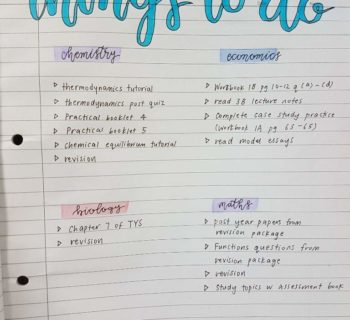 things to do
chemistry
▷ thermodynamics tutorial
▷ thermodynamics post quiz
▷ Practical booklet 4
▷ Practical booklet 5
▷ chemical equilibrium tutorial
▷ revision
economics
▷ Workbook 1B pg 10-12 q (a)-(d)
▷ read 3B lecture notes
▷ Complete case study practise
(Workbook 1A pg 63-65)
▷ read model essays
biology
▷ Chapter 7 of TYS
▷ revision
maths
▷ past year papers from
revision package
▷ Functions questions from
revision package
▷ revision
▷ Study topics w assessment book